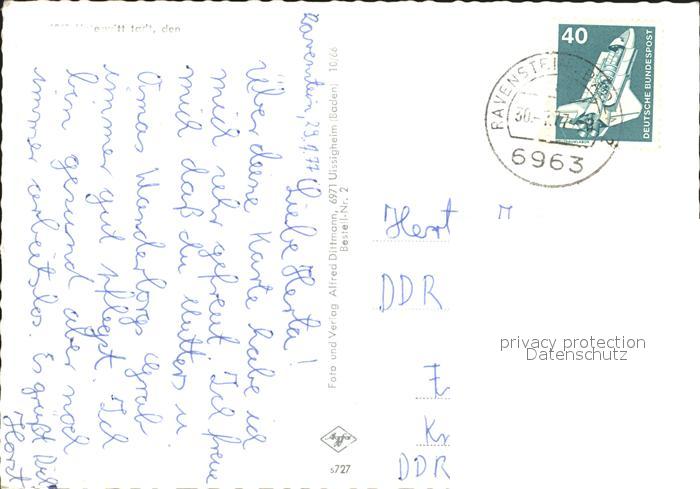 Ravenstein, 29.1.77
Liebe Herta!
Über deine Karte habe ich
mich sehr gefreut. Ich freue
mich daß du Mutters u
Omas Grab
immer gut pflegst. Ich
bin gesund aber noch
immer arbeitslos. Es grüßt Dich
Horst
Foto und Verlag Alfred Dittmann, 6971 Uissigheim (Baden) 10/66
Bestell-Nr. 2
Agfa
s727
40
DEUTSCHE BUNDESPOST
RAVENSTEIN
30.
77
6963
Hert
DDR
Kr
DDR
privacy protection
Datenschutz